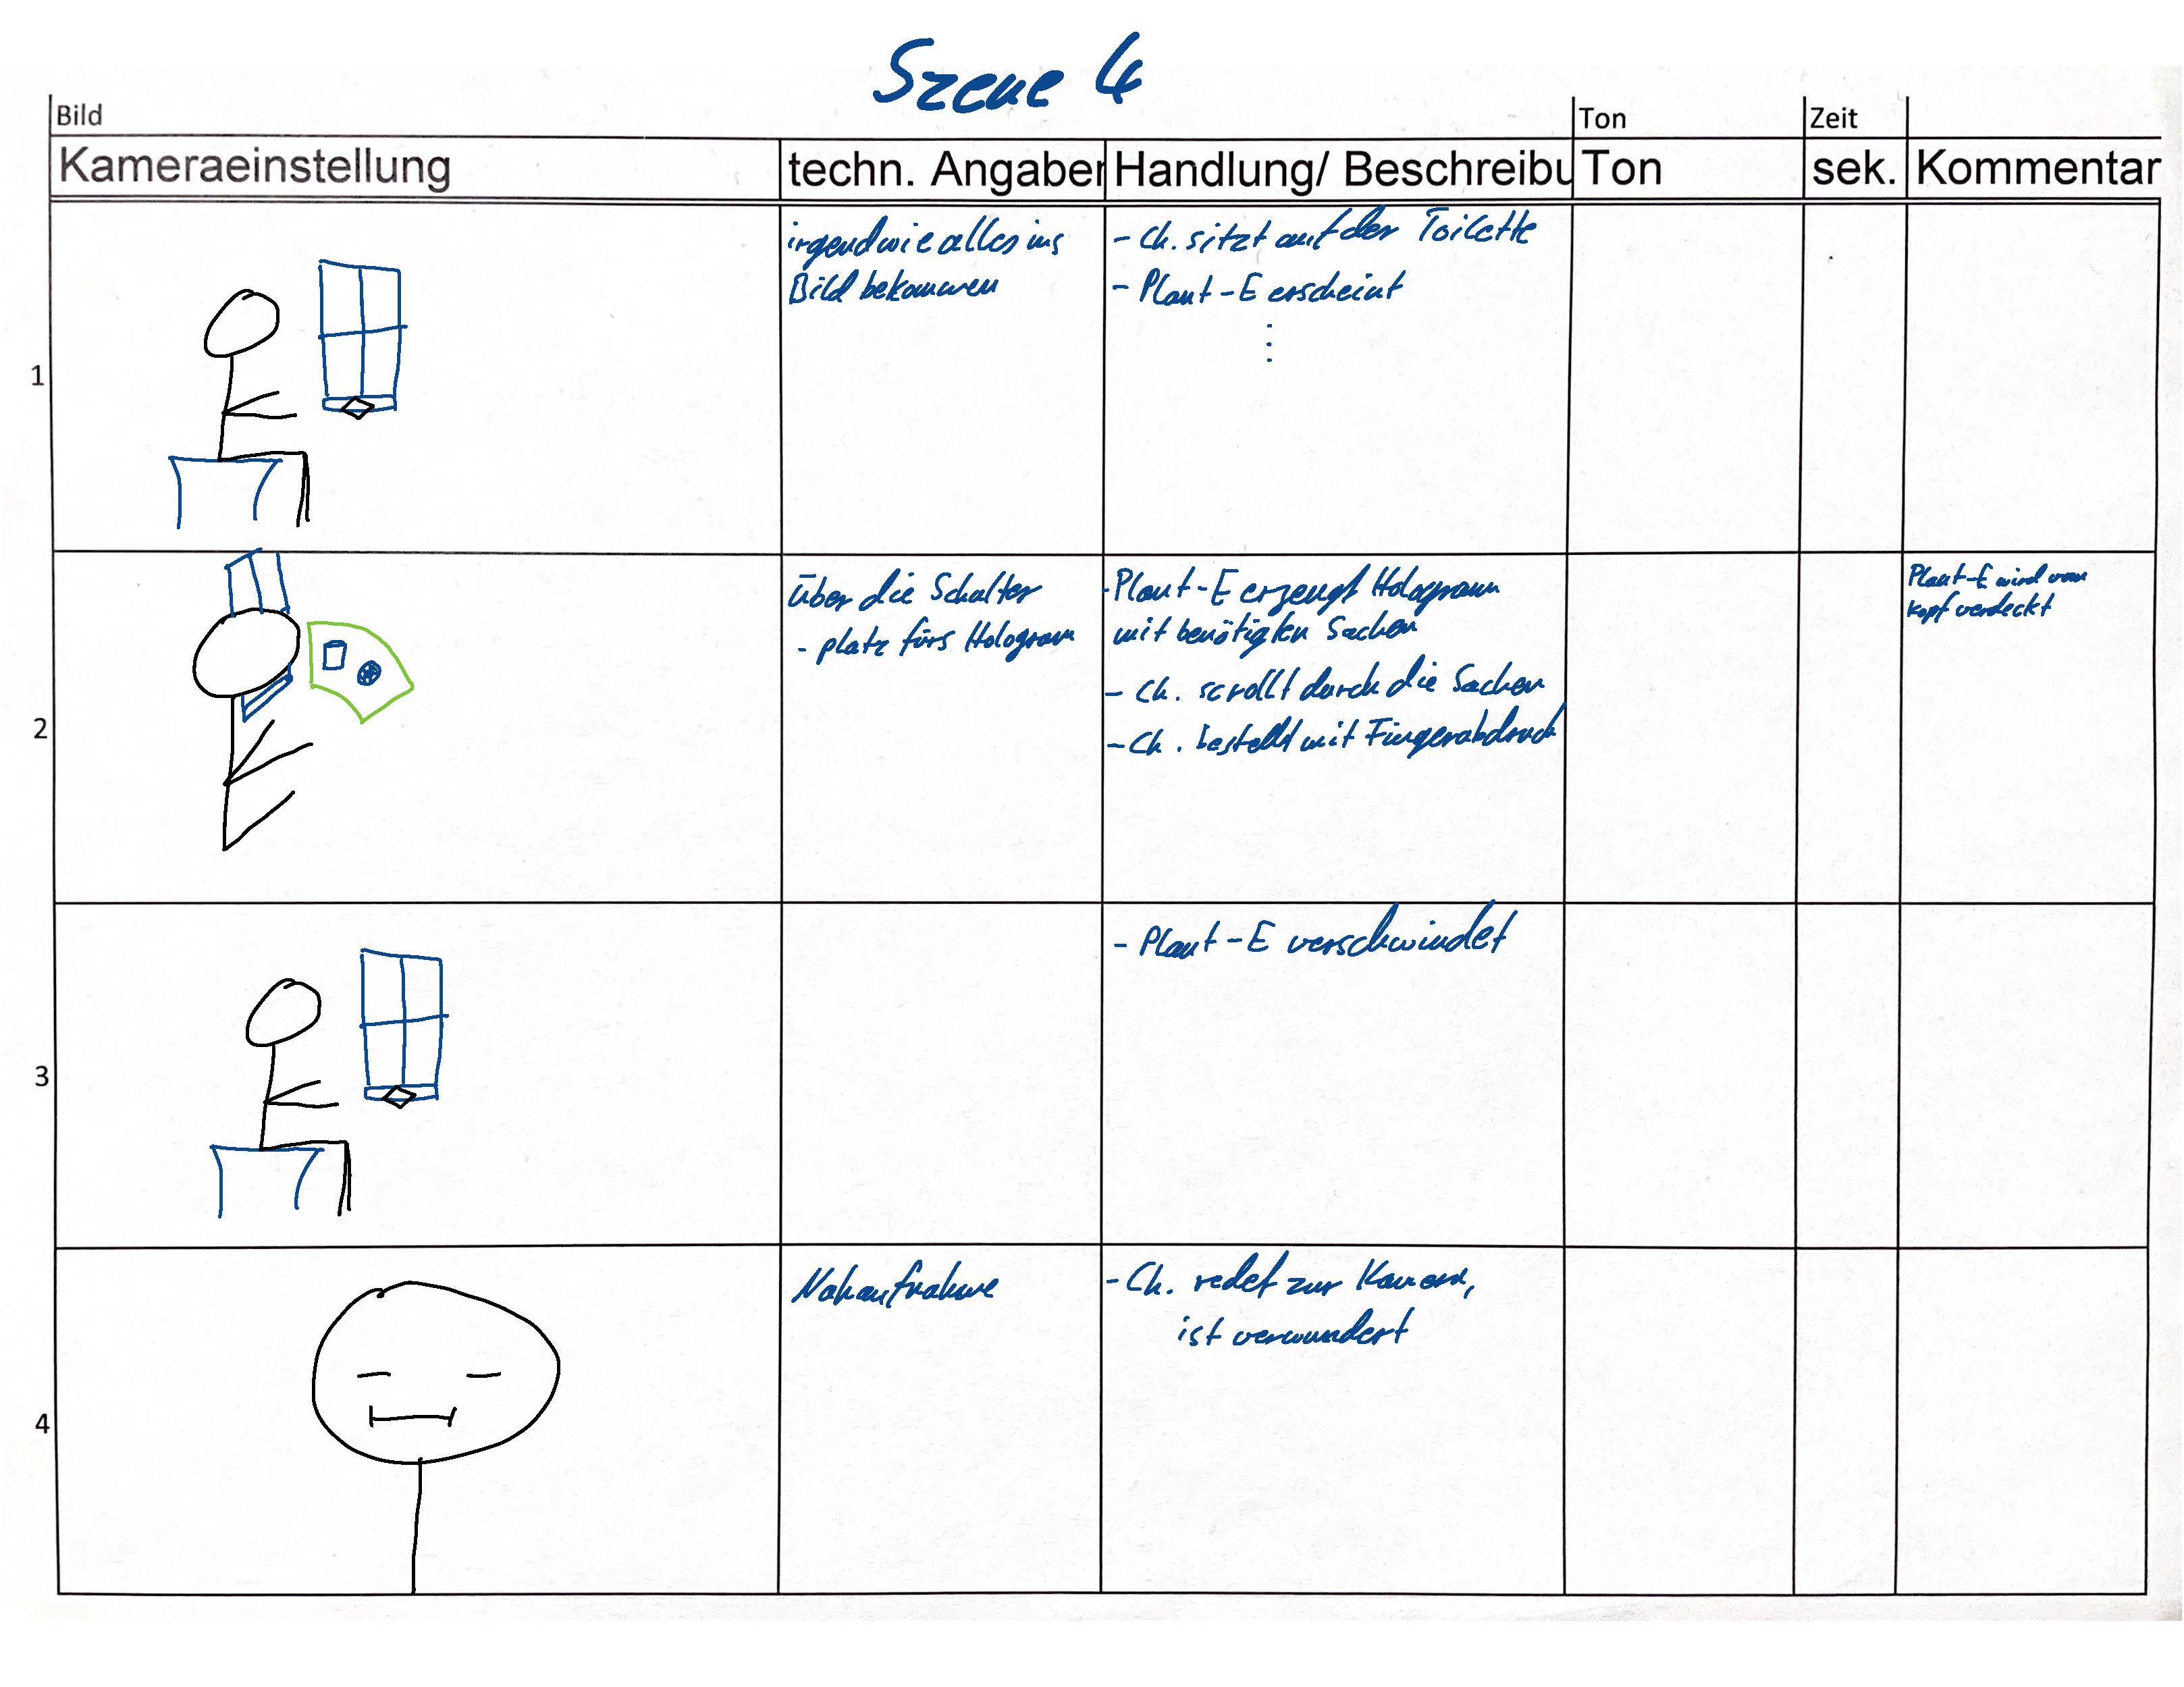 Szene 4
Bild
Ton
Zeit
Kameraeinstellung
techn. Angaben
Handlung/ Beschreibu
Ton
sek.
Kommentar
1
irgendwie alles ins
Bild bekommen
- Ch. sitzt auf der Toilette
- Plant-E erscheint
⋮
2
über die Schalter
- platz fürs Hologram
- Plant-E erzeugt Hologramm
mit benötigten Sachen
- Ch. scrollt durch die Sachen
- Ch. bestellt mit Fingerabdruck
Plant-E wird vom
kopf verdeckt
3
- Plant-E verschwindet
4
Nahaufnahme
- Ch. redet zur Kamera,
ist verwundert